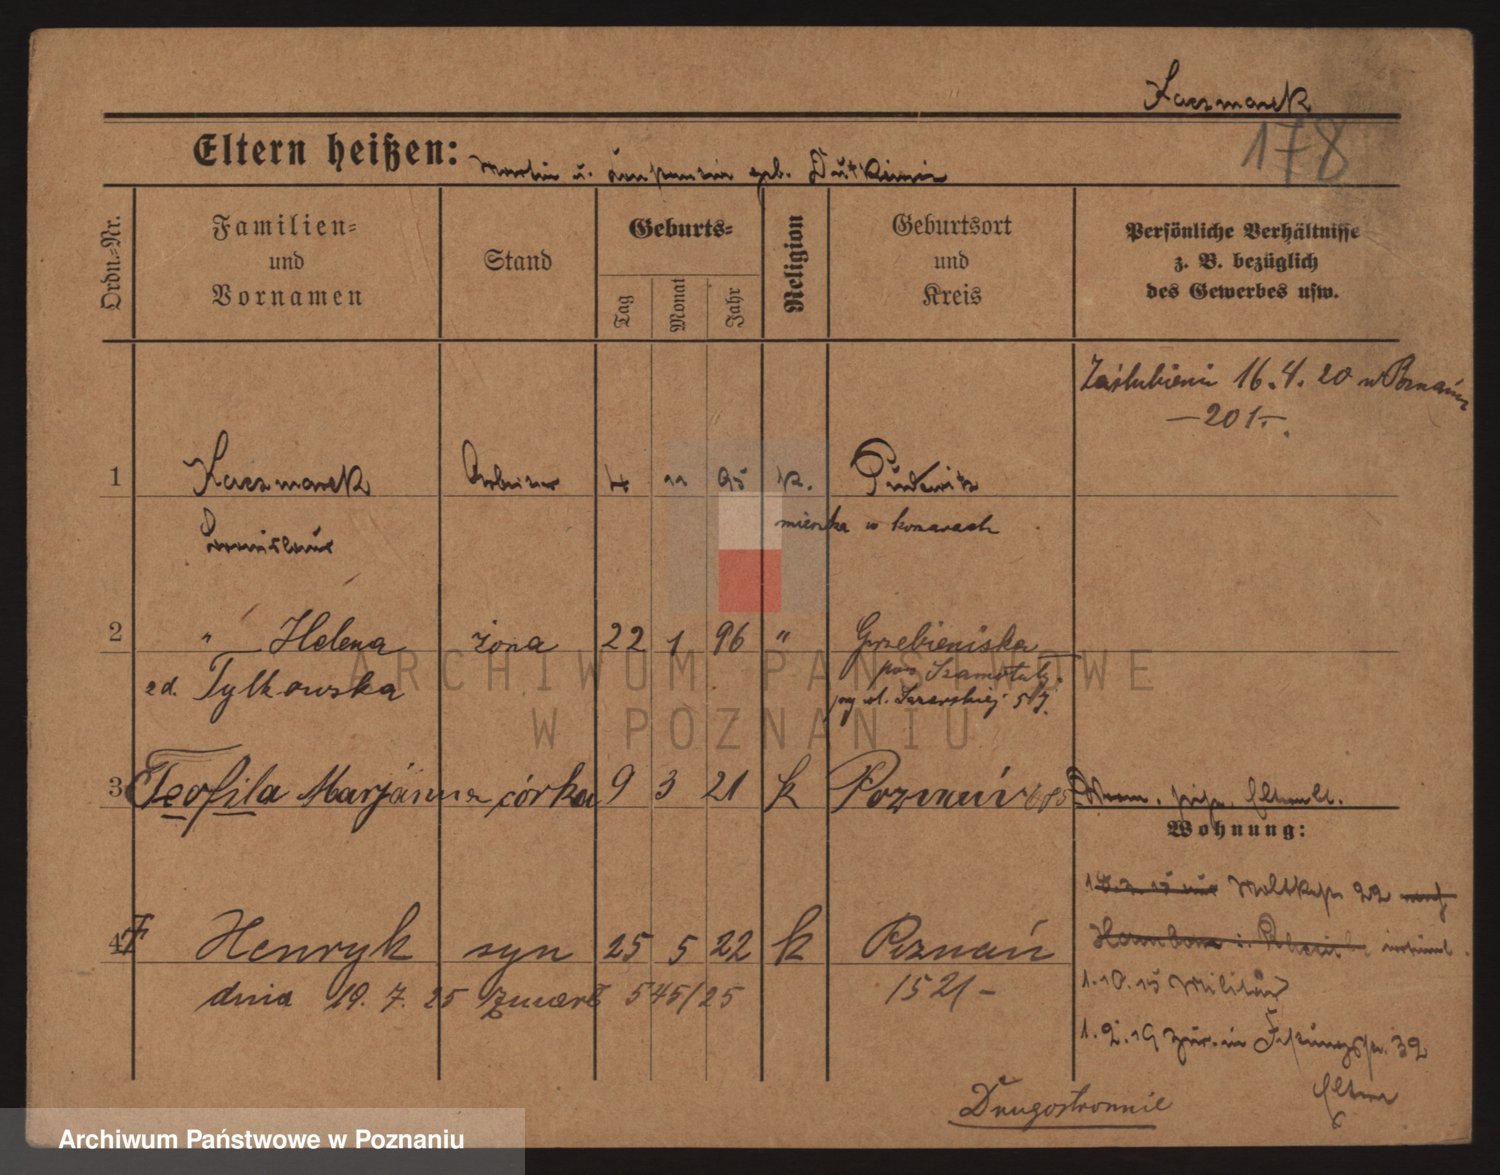 Kaczmarek
178
Eltern heißen: Martin u. geb. Dutkiewicz
Ordn.-Nr.
Familien- und Vornamen
Stand
Geburts-
Tag
Monat
Jahr
Religion
Geburtsort und Kreis
Persönliche Verhältnisse z. B. bezüglich des Gewerbes usw.
Zaślubieni 16.4.20 w Poznaniu
—201—.
1 Kaczmarek Arbeiter 4 11 95 K. Pudewitz
mieszka w konarach
Stanislaus
2 " Helena żona 22 1 96 " Grzebieniska
pow Szamotuły.
zd. Tylkowska
3 Teofila Marjanna córka 9 3 21 k Poznań
Wohnung:
22
4 Henryk syn 25 5 22 k Poznań
dnia 19. 7. 25 zmarł 545/25
1521-
1.10.15 Militär
1.2.19 zur. in 39
Eltern
Drugostronnie
ARCHIWUM PAŃSTWOWE
W POZNANIU
Archiwum Państwowe w Poznaniu